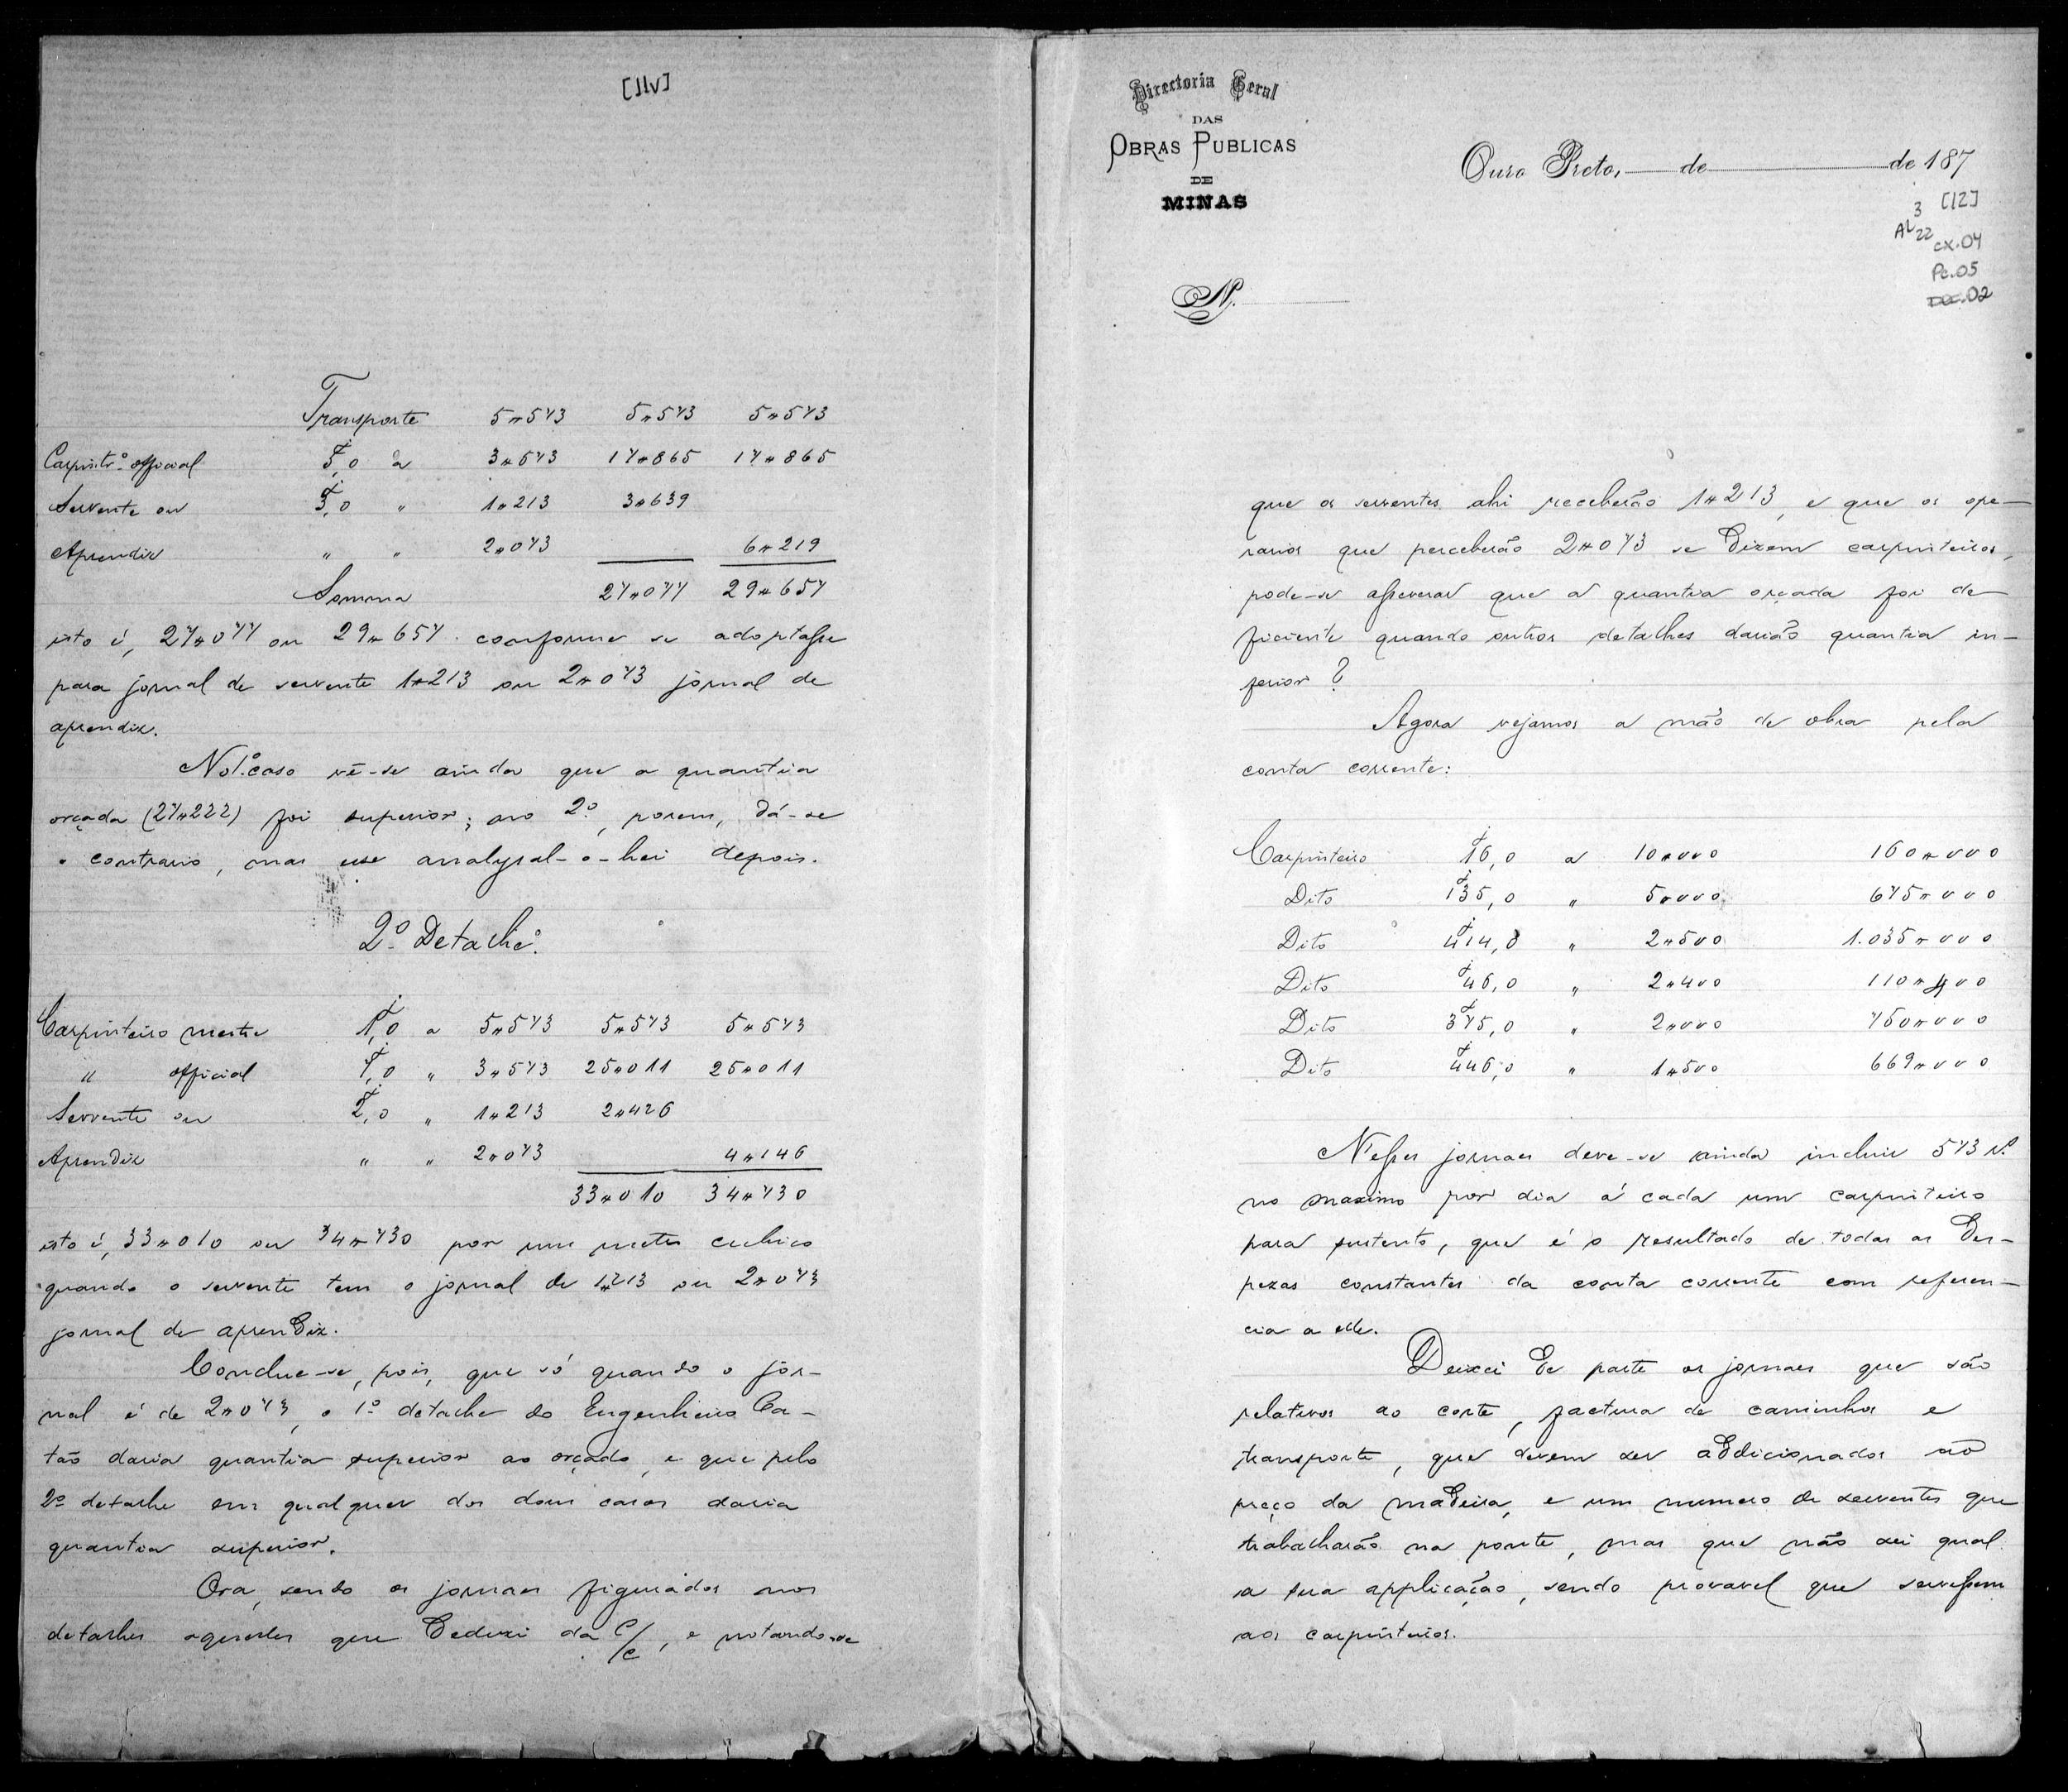 [11v]
Transporte 5$573 5$573 5$573
Carpintrº official 5,0 j a 3$573 17$865 17$865
Servente ou 3,0 j " 1$213 3$639
Aprendiz " " 2$073 6$219
Somma 27$077 29$657
isto é, 27$077 ou 29$657 conforme se adoptasse
para jornal de servente 1$213 ou 2$073 jornal de
aprendiz.
No 1º caso vê-se ainda que a quantia
orçada (27$222) foi superior; no 2º, porem, dá-se
o contrario, mas esse analysal-o-hei depois.
2º Detache.
Carpinteiro mestre 1,0 j a 5$573 5$573 5$573
" official 7,0 j " 3$573 25$011 25$011
Servente ou 2,0 j " 1$213 2$426
Aprendiz " " 2$073 4$146
33$010 34$730
isto é, 33$010 ou 34$730 por um metro cubico
quando o servente tem o jornal de 1$213 ou 2$073
jornal de aprendiz.
Conclue-se, pois, que só quando o jor-
nal é de 2$073, o 1º detache do Engenheiro Ca-
tão daria quantia superior ao orçado, e que pelo
2º detache em qualquer dos dous casos daria
quantia superior.
Ora, sendo os jornaes figurados nos
detaches aquelles que deduzi da C/C, e notando-se
Directoria Geral
DAS
OBRAS PUBLICAS
DE
MINAS
Ouro Preto, de de 187
[12]
3
AL 22
cx.04
Pc.05
Doc.02
N.
que os serventes ahi receberão 1$213, e que os ope-
rarios que perceberão 2$073 se dizem carpinteiros,
pode-se asseverar que a quantia orçada foi de-
ficiente quando outros detalhes darião quantia in-
ferior?
Agora vejamos a mão de obra pela
conta corrente:
Carpinteiro 16,0 j a 10$000 160$000
Dito 135,0 j " 5$000 675$000
Dito 414,0 j " 2$500 1.035$000
Dito 46,0 j " 2$400 110$400
Dito 375,0 j " 2$000 750$000
Dito 446,0 j " 1$500 669$000
Nesses jornaes deve-se ainda incluir 573 rs
no maximo por dia á cada um carpinteiro
para sustento, que é o resultado de todas as des-
pezas constantes da conta corrente com referen-
cia a elle.
Deixei de parte os jornaes que são
relativos ao corte, factura de caminhos e
transporte, que devem ser addicionados ao
preço da madeira, e um numero de serventes que
trabalharão na ponte, mas que não sei qual
a sua applicação, sendo provavel que servissem
aos carpinteiros.